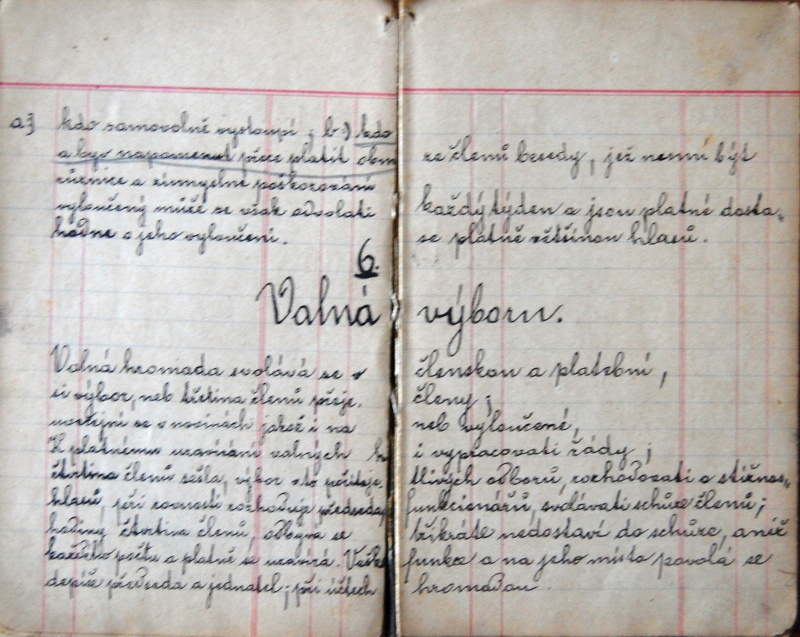 a) kdo samovolně vystoupí ; b) kdo
a byv napomenut přece platit
různice a zúmyslné poškozování
vyloučený může se však odvolati
hodne o jeho vyloučení.
6.
Valná
Valná hromada svolává se v
si výbor, neb třetina členů přeje.
uveřejní se v novinách jakož i na
K platnému usnášení valných
čtvrtina členů sešla, výbor
hlasů, při rovnosti rozhoduje předseda
hodiny čtvrtina členů, odbývá se
každého počtu a platně se usnáší.
depíše předseda a jednatel ; při účtech
ze členů besedy, jež nesmí být
každý týden a jsou platné dosta-
se platně většinou hlasů.
výboru.
členskou a platební,
členy ;
neb vyloučené,
i vypracovati řády ;
tlivých odborů, rozhodovati o stížnos-
funkcionářů, svolávati schůze členů ;
třikráte nedostaví do schůze, aniž
funkce a na jeho místo povolá se
hromadou.